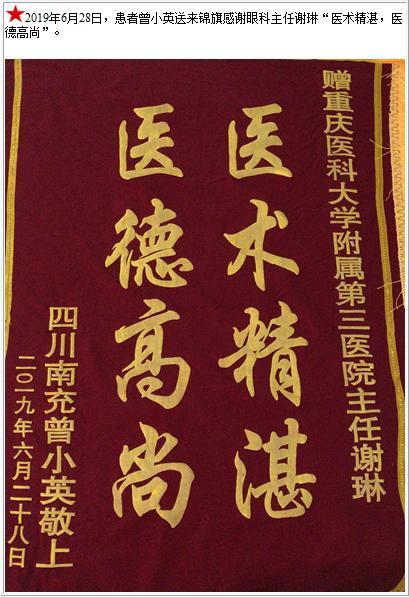 ★2019年6月28日，患者曾小英送来锦旗感谢眼科主任谢琳“医术精湛，医
德高尚”。
赠重庆医科大学附属第三医院主任谢琳
医术精湛
医德高尚
四川南充曾小英敬上
二〇一九年六月二十八日